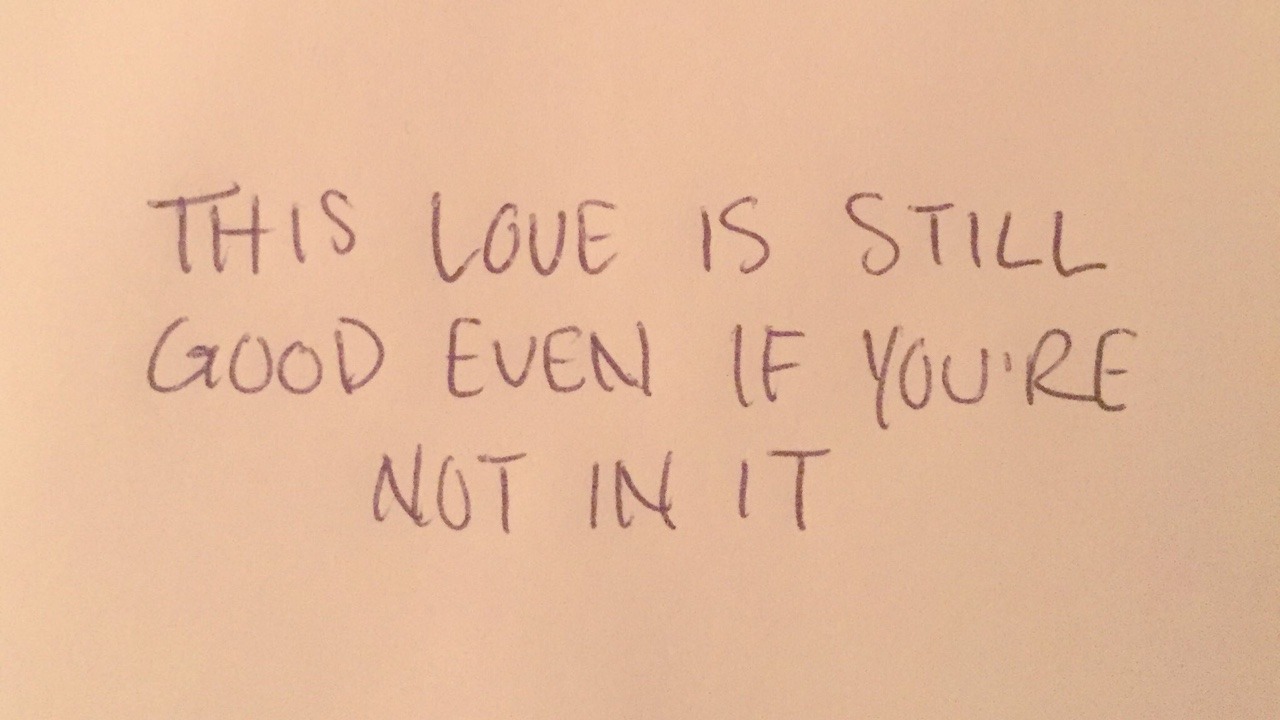 THIS LOVE IS STILL
GOOD EVEN IF YOU'RE
NOT IN IT